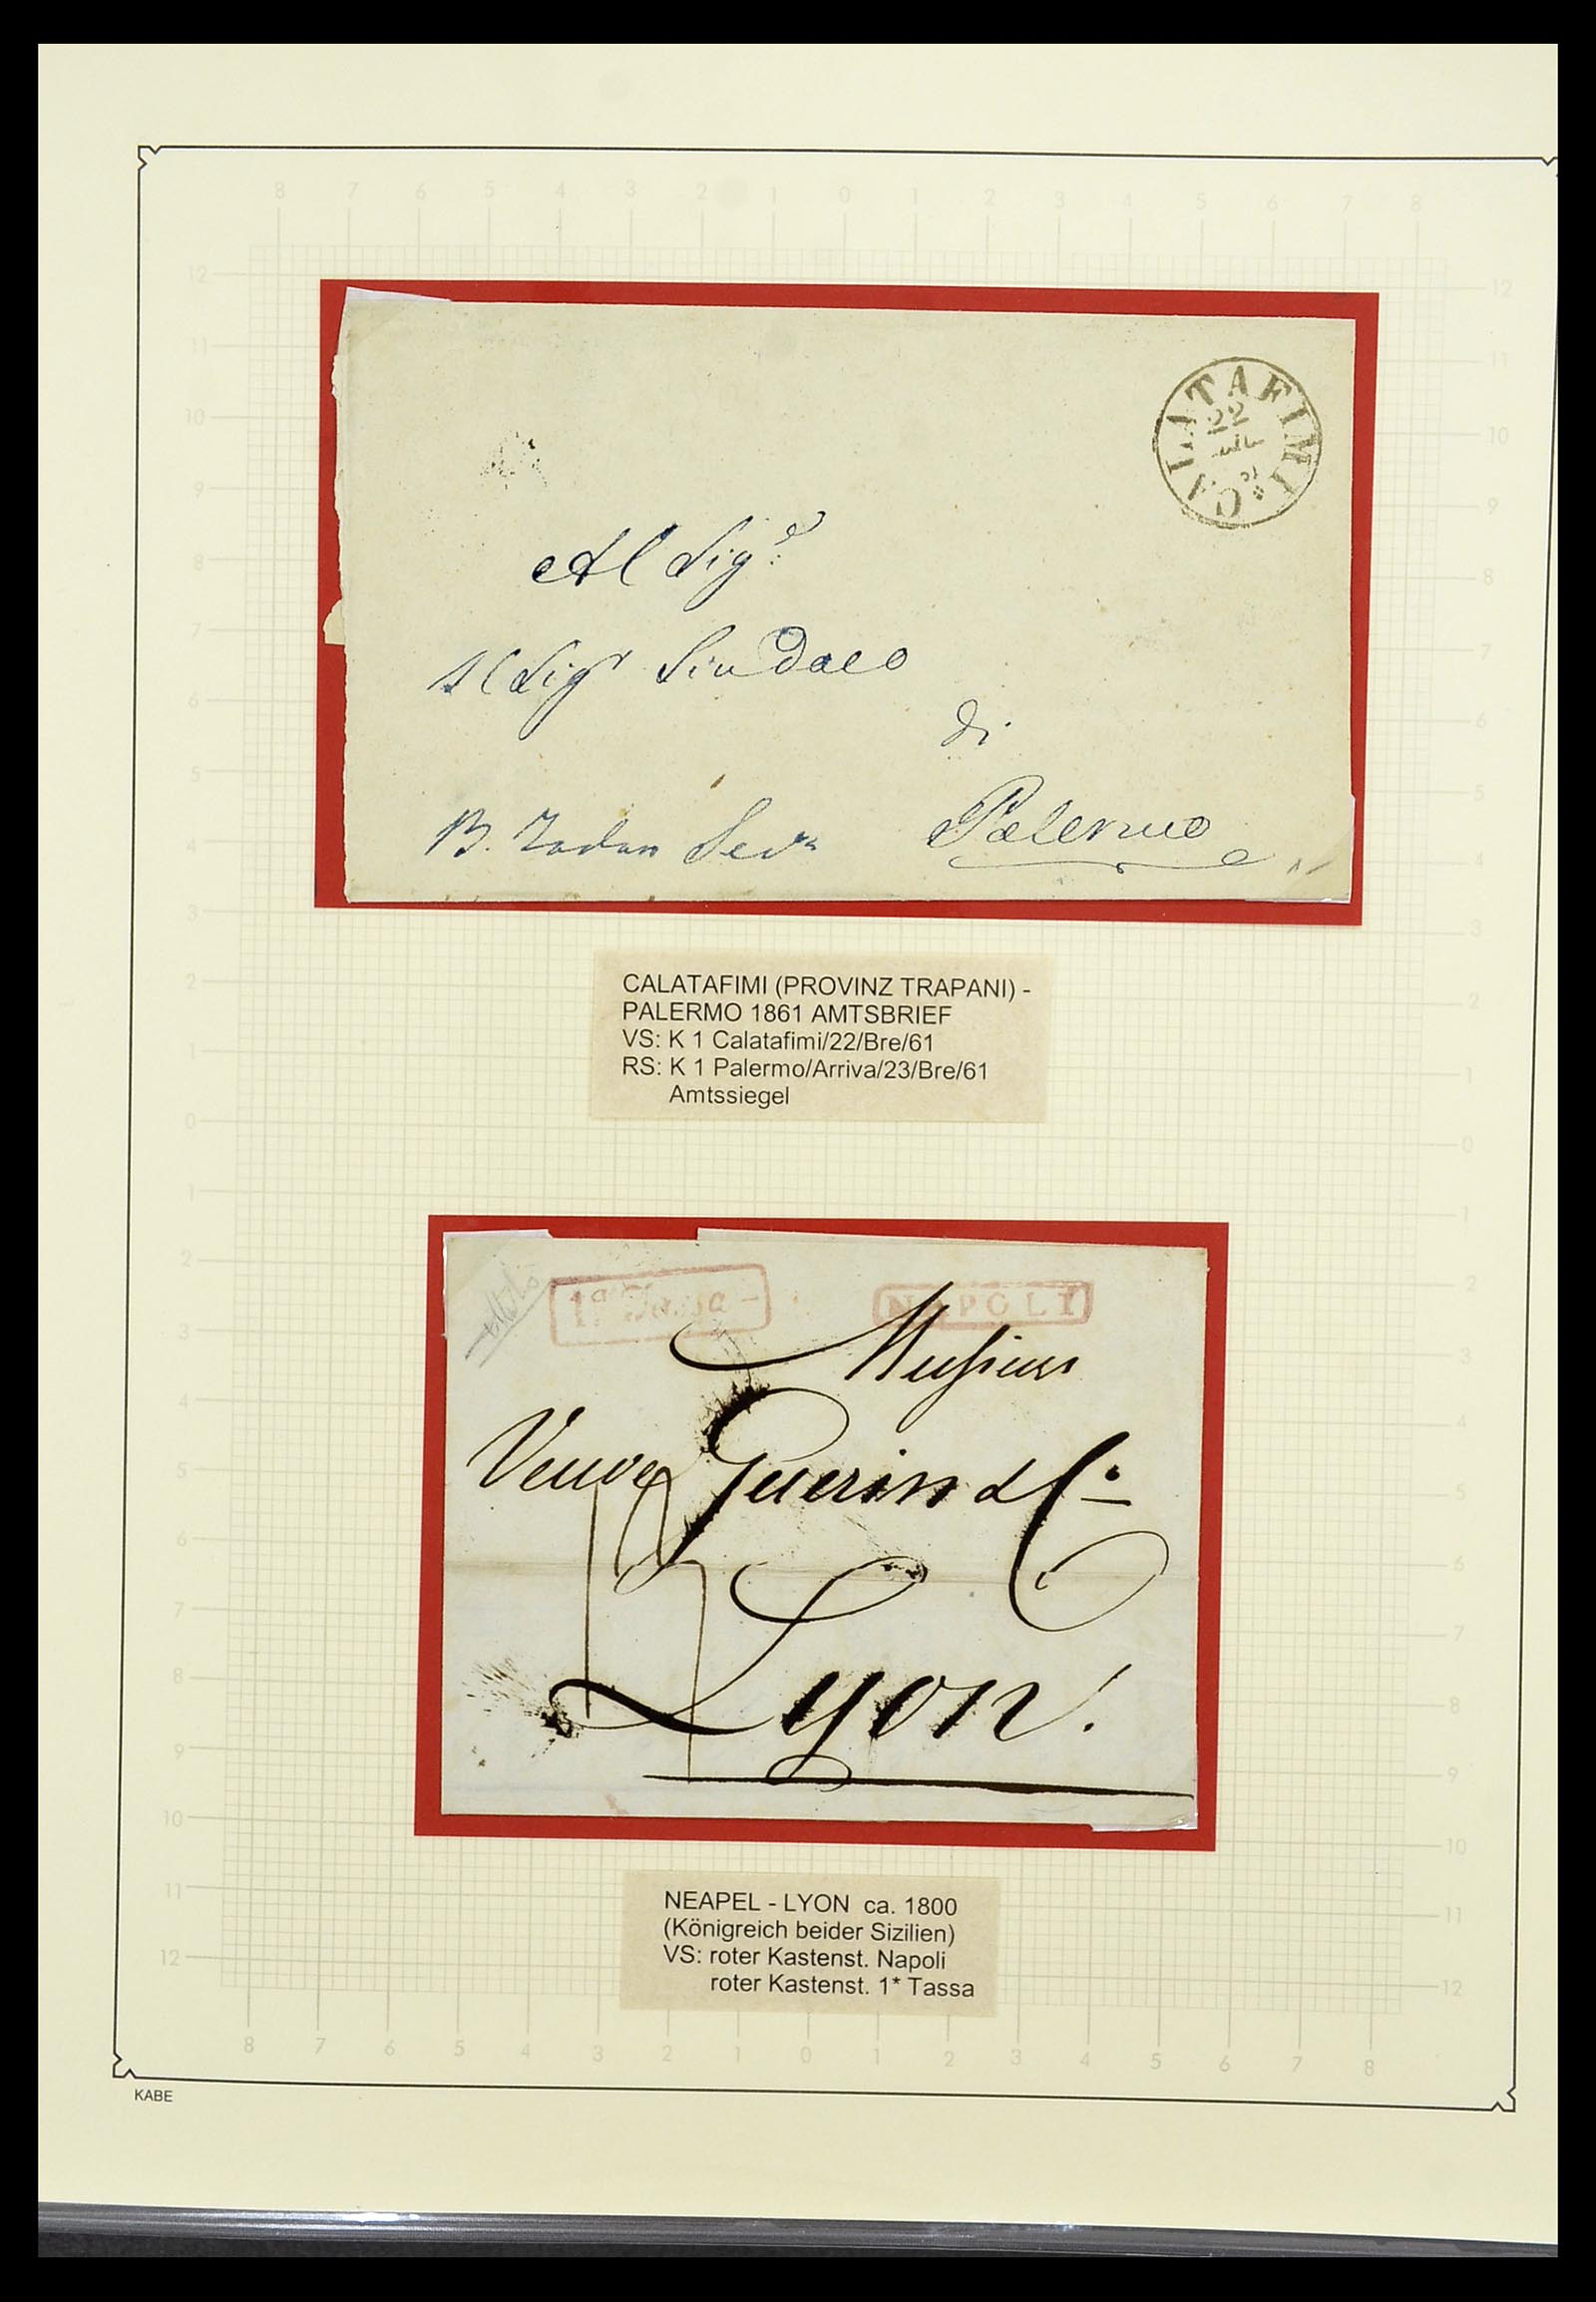 8 7 6 5 4 3 2 1 0 1 2 3 4 5 6 7 8
CALATAFIMI
22
Al Sigr
Al Sigr Sindaco
di
Palermo
CALATAFIMI (PROVINZ TRAPANI) -
PALERMO 1861 AMTSBRIEF
VS: K 1 Calatafimi/22/Bre/61
RS: K 1 Palermo/Arriva/23/Bre/61
Amtssiegel
1a Tassa -
NAPOLI
Messieurs
Veuve Guerin & Co
Lyon.
NEAPEL - LYON ca. 1800
(Königreich beider Sizilien)
VS: roter Kastenst. Napoli
roter Kastenst. 1* Tassa
8 7 6 5 4 3 2 1 0 1 2 3 4 5 6 7 8
KABE